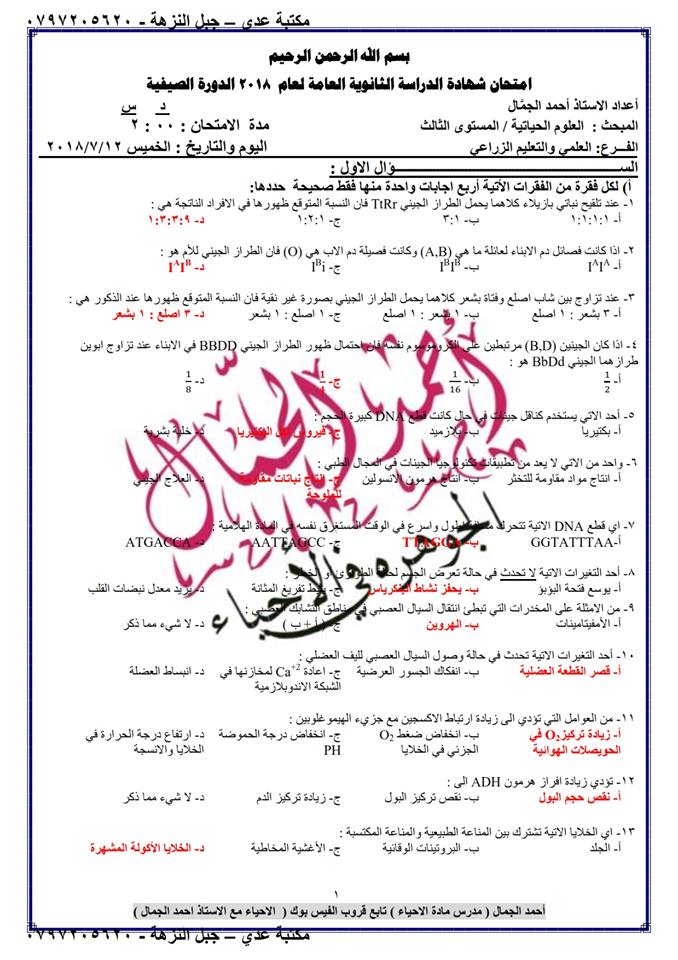 مكتبة عدي – جبل النزهة - ٠٧٩٧٢٠٥٦٢٠
بسم الله الرحمن الرحيم
امتحان شهادة الدراسة الثانوية العامة لعام ٢٠١٨ الدورة الصيفية
أعداد الاستاذ أحمد الجمّال
د س
المبحث : العلوم الحياتية / المستوى الثالث
مدة الامتحان : ٠٠ : ٢
الفــرع: العلمي والتعليم الزراعي
اليوم والتاريخ : الخميس ٢٠١٨/٧/١٢
الســـــــــؤال الاول :
أ) لكل فقرة من الفقرات الأتية أربع اجابات واحدة منها فقط صحيحة حددها:
١- عند تلقيح نباتي بازيلاء كلاهما يحمل الطراز الجيني TtRr فان النسبة المتوقع ظهورها في الافراد الناتجة هي :
أ- ١:١:١:١ ب- ٣:١ ج- ١:٢:١ د- ١:٣:٣:٩
٢- اذا كانت فصائل دم الابناء لعائلة ما هي (A,B) وكانت فصيلة دم الاب هي (O) فان الطراز الجيني للأم هو :
أ- IᴬIᴬ ب- IᴮIᴮ ج- Iᴮi د- IᴬIᴮ
٣- عند تزاوج بين شاب اصلع وفتاة بشعر كلاهما يحمل الطراز الجيني بصورة غير نقية فان النسبة المتوقع ظهورها عند الذكور هي :
أ- ٣ بشعر : ١ اصلع ب- ١ بشعر : ١ اصلع ج- ١ اصلع : ١ بشعر د- ٣ اصلع : ١ بشعر
٤- اذا كان الجينين (B,D) مرتبطين على الكروموسوم نفسه فان احتمال ظهور الطراز الجيني BBDD في الابناء عند تزاوج ابوين
طرازهما الجيني BbDd هو :
أ- 1/2 ب- 1/16 ج- 1/4 د- 1/8
٥- أحد الاتي يستخدم كناقل جينات في حال كانت قطع DNA كبيرة الحجم :
أ- بكتيريا ب- بلازميد ج- فيروس آكل البكتيريا د- خلية بشرية
٦- واحد من الاتي لا يعد من تطبيقات تكنولوجيا الجينات في المجال الطبي :
أ- انتاج مواد مقاومة للتخثر ب- انتاج هرمون الانسولين ج- انتاج نباتات مقاومة للملوحة د- العلاج الجيني
٧- اي قطع DNA الاتية تتحرك مسافة اطول واسرع في الوقت المستغرق نفسه في المادة الهلامية :
أ- GGTATTTAA ب- TTAGGA ج- AATTAGCC د- ATGACCA
٨- أحد التغيرات الاتية لا تحدث في حالة تعرض الجسم لحالة الطوارئ او الخطر :
أ- يوسع فتحة البؤبؤ ب- يحفز نشاط البنكرياس ج- يثبط تفريغ المثانة د- يزيد معدل نبضات القلب
٩- من الامثلة على المخدرات التي تبطئ انتقال السيال العصبي في مناطق التشابك العصبي :
أ- الأمفيتامينات ب- الهروين ج- ( أ + ب ) د- لا شيء مما ذكر
١٠- أحد التغيرات الاتية تحدث في حالة وصول السيال العصبي لليف العضلي :
أ- قصر القطعة العضلية ب- انفكاك الجسور العرضية ج- اعادة Ca⁺² لمخازنها في الشبكة الاندوبلازمية د- انبساط العضلة
١١- من العوامل التي تؤدي الى زيادة ارتباط الاكسجين مع جزيء الهيموغلوبين :
أ- زيادة تركيزO₂ في الحويصلات الهوائية ب- انخفاض ضغط O₂ الجزئي في الخلايا ج- انخفاض درجة الحموضة PH د- ارتفاع درجة الحرارة في الخلايا والانسجة
١٢- تؤدي زيادة افراز هرمون ADH الى :
أ- نقص حجم البول ب- نقص تركيز البول ج- زيادة تركيز الدم د- لا شيء مما ذكر
١٣- اي الخلايا الاتية تشترك بين المناعة الطبيعية والمناعة المكتسبة :
أ- الجلد ب- البروتينات الوقائية ج- الأغشية المخاطية د- الخلايا الأكولة المشهرة
أحمد الجمال
الجوهرة في الأحياء
١
أحمد الجمال ( مدرس مادة الاحياء ) تابع قروب الفيس بوك ( الاحياء مع الاستاذ احمد الجمال )
مكتبة عدي – جبل النزهة - ٠٧٩٧٢٠٥٦٢٠